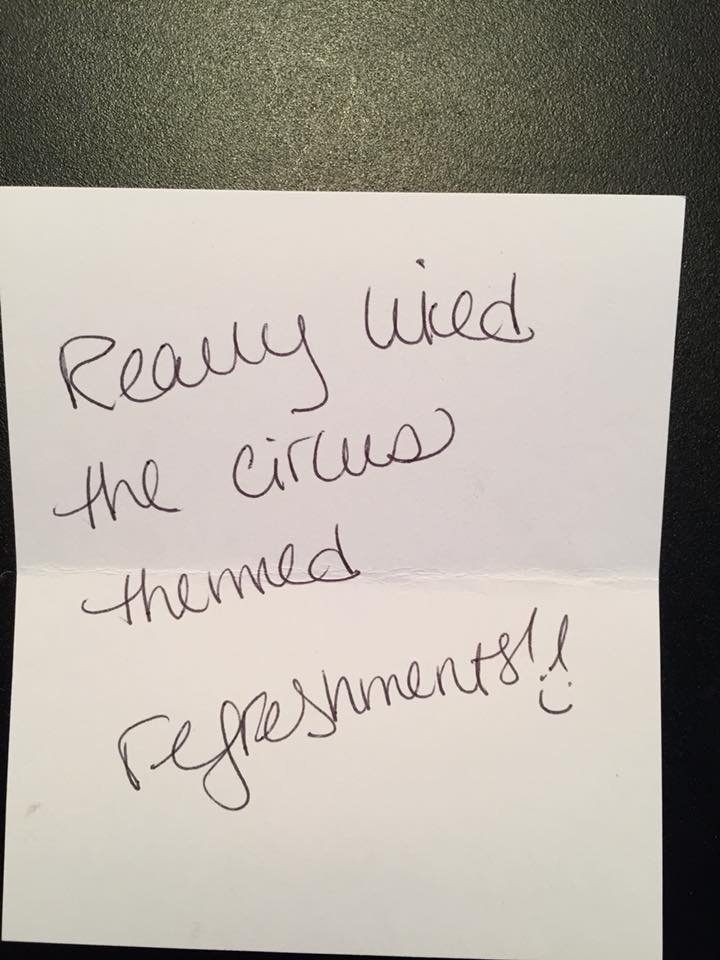 Really liked
the circus
themed
refreshments!! :)